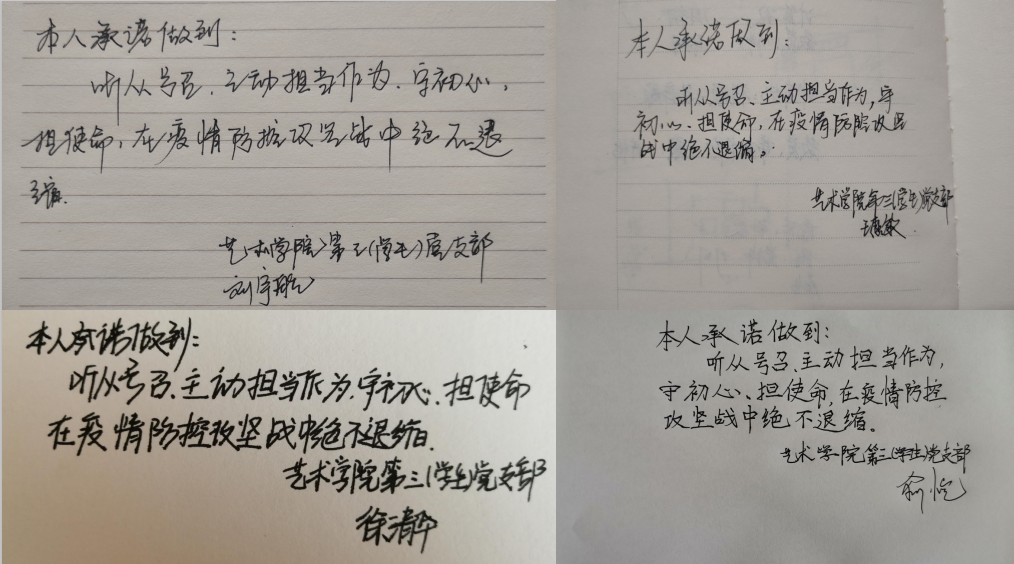 本人承诺做到：
听从号召、主动担当作为、守初心、
担使命，在疫情防控攻坚战中绝不退
缩。
艺术学院第三(学生)党支部
刘宇
本人承诺做到：
听从号召、主动担当作为，守
初心、担使命，在疫情防控攻坚
战中绝不退缩。
艺术学院第三(学生)党支部
王
本人承诺做到：
听从号召、主动担当作为、守初心、担使命
在疫情防控攻坚战中绝不退缩。
艺术学院第三(学生)党支部
徐清华
本人承诺做到：
听从号召、主动担当作为，
守初心、担使命，在疫情防控
攻坚战中绝不退缩。
艺术学院第三(学生)党支部
俞悦